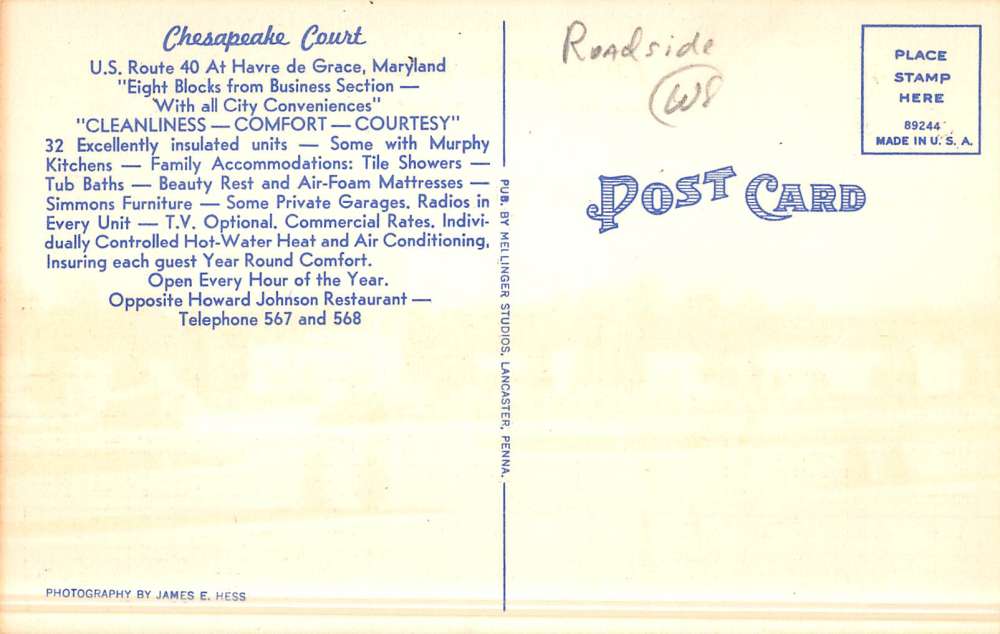 Chesapeake Court
U.S. Route 40 At Havre de Grace, Maryland
"Eight Blocks from Business Section —
With all City Conveniences"
"CLEANLINESS — COMFORT — COURTESY"
32 Excellently insulated units — Some with Murphy
Kitchens — Family Accommodations: Tile Showers —
Tub Baths — Beauty Rest and Air-Foam Mattresses —
Simmons Furniture — Some Private Garages. Radios in
Every Unit — T.V. Optional. Commercial Rates. Indivi-
dually Controlled Hot-Water Heat and Air Conditioning,
Insuring each guest Year Round Comfort.
Open Every Hour of the Year.
Opposite Howard Johnson Restaurant —
Telephone 567 and 568
PHOTOGRAPHY BY JAMES E. HESS
PUB. BY MELLINGER STUDIOS, LANCASTER, PENNA.
Roadside
POST CARD
PLACE
STAMP
HERE
89244
MADE IN U. S. A.